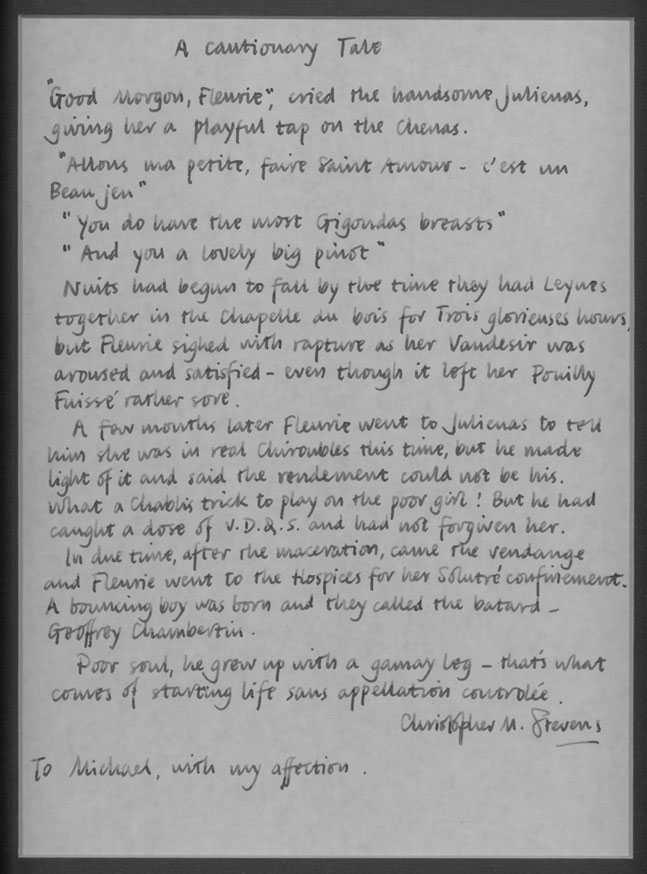 A Cautionary Tale
"Good Morgon, Fleurie", cried the handsome Julienas,
giving her a playful tap on the Chenas.
"Allons ma petite, faire Saint Amour - c'est un
Beau jeu"
"You do have the most Gigondas breasts"
"And you a lovely big pinot"
Nuits had begun to fall by the time they had Leynes
together in the Chapelle du bois for Trois glorieuses hours,
but Fleurie sighed with rapture as her Vaudesir was
aroused and satisfied - even though it left her Pouilly
Fuissé rather sore.
A few months later Fleurie went to Julienas to tell
him she was in real Chiroubles this time, but he made
light of it and said the rendement could not be his.
What a Chablis trick to play on the poor girl! But he had
caught a dose of V.D.Q.S. and had not forgiven her.
In due time, after the maceration, came the vendange
and Fleurie went to the Hospices for her Solutré confinement.
A bouncing boy was born and they called the batard -
Geoffrey Chambertin.
Poor soul, he grew up with a gamay leg - that's what
comes of starting life sans appellation controlée.
Christopher M. Stevens
To Michael, with my affection.